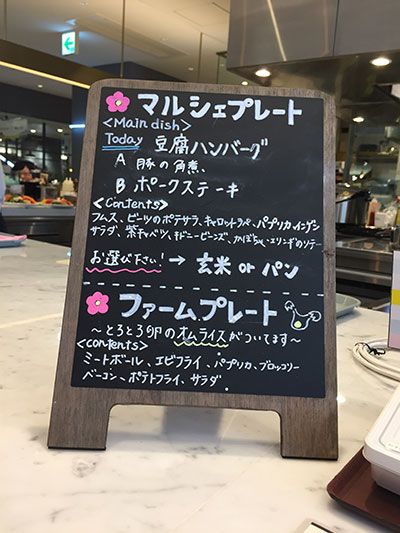 マルシェプレート
<Main dish>
Today 豆腐ハンバーグ
A 豚の角煮、
B ポークステーキ
<Contents>
フムス、ビーツのポテサラ、キャロットラペ、パプリカ、インゲン
サラダ、紫キャベツ、キドニービーンズ、かぼちゃ、エリンギのソテー
お選び下さい! → 玄米 or パン
ファームプレート
〜とろとろ卵のオムライスがついてます〜
<contents>
ミートボール、エビフライ、パプリカ、ブロッコリー
ベーコン、ポテトフライ、サラダ